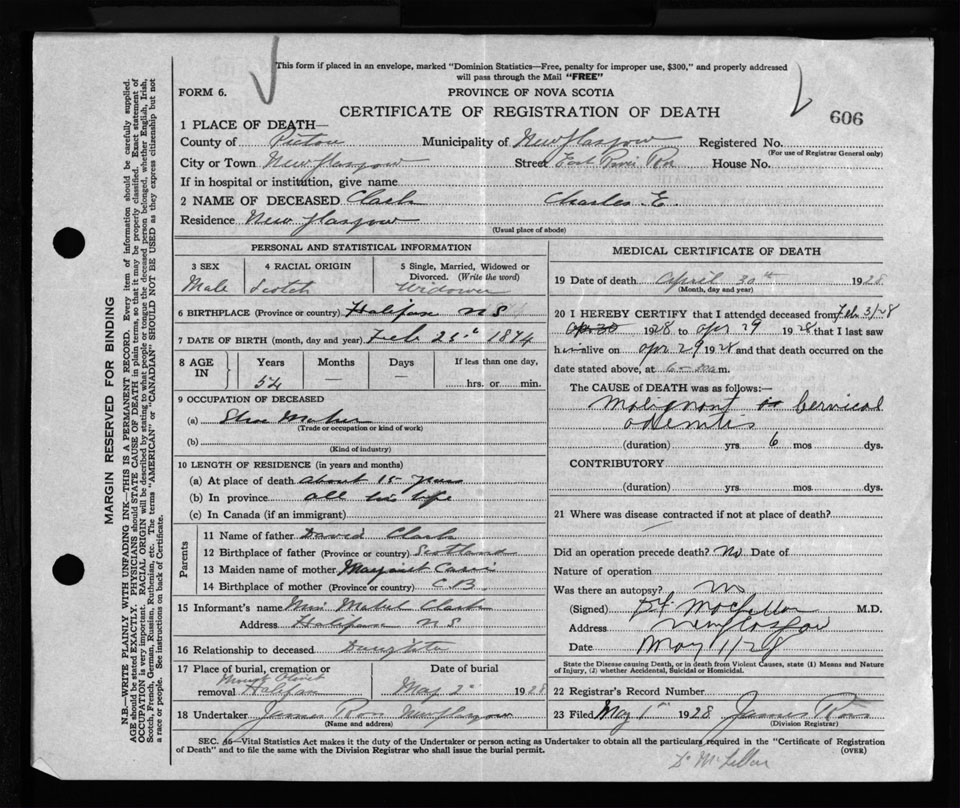 This form if placed in an envelope, marked "Dominion Statistics—Free, penalty for improper use, $300," and properly addressed
will pass through the Mail "FREE"
FORM 6.
PROVINCE OF NOVA SCOTIA
CERTIFICATE OF REGISTRATION OF DEATH
606
1 PLACE OF DEATH—
County of Pictou Municipality of New Glasgow Registered No.
(For use of Registrar General only)
City or Town New Glasgow Street East River Rd House No.
If in hospital or institution, give name
2 NAME OF DECEASED Clark Charles E.
Residence New Glasgow
(Usual place of abode)
PERSONAL AND STATISTICAL INFORMATION
3 SEX 4 RACIAL ORIGIN 5 Single, Married, Widowed or
Divorced. (Write the word)
Male Scotch Widower
6 BIRTHPLACE (Province or country) Halifax N S
7 DATE OF BIRTH (month, day and year) Feb 25 1874
8 AGE IN Years Months Days If less than one day,
54 — — hrs. or min.
9 OCCUPATION OF DECEASED
(a) Shoe Maker
(Trade or occupation or kind of work)
(b)
(Kind of industry)
10 LENGTH OF RESIDENCE (in years and months)
(a) At place of death about 15 years
(b) In province all his life
(c) In Canada (if an immigrant)
Parents
11 Name of father David Clark
12 Birthplace of father (Province or country) Scotland
13 Maiden name of mother Margaret
14 Birthplace of mother (Province or country) C B
15 Informant's name Miss Mabel Clark
Address Halifax N S
16 Relationship to deceased Daughter
17 Place of burial, cremation or Date of burial
Mount Olivet
removal Halifax May 2 1928
18 Undertaker James Ross New Glasgow
(Name and address)
MEDICAL CERTIFICATE OF DEATH
19 Date of death April 30th 1928
(Month, day and year)
20 I HEREBY CERTIFY that I attended deceased from Feb 3/28
Apr 30 1928 to Apr 29 1928 that I last saw
him alive on Apr 29 1928 and that death occurred on the
date stated above, at 6 m.
The CAUSE of DEATH was as follows:—
Malignant Cervical
adenites
(duration) yrs 6 mos dys.
CONTRIBUTORY
(duration) yrs. mos. dys.
21 Where was disease contracted if not at place of death?
Did an operation precede death? No Date of
Nature of operation
Was there an autopsy? No
(Signed) McLellan M.D.
Address New Glasgow
Date May 1/28
State the Disease causing Death, or in death from Violent Causes, state (1) Means and Nature
of Injury, (2) whether Accidental, Suicidal or Homicidal.
22 Registrar's Record Number
23 Filed May 1st 1928 James Ross
(Division Registrar)
SEC. 46—Vital Statistics Act makes it the duty of the Undertaker or person acting as Undertaker to obtain all the particulars required in the "Certificate of Registration
of Death" and to file the same with the Division Registrar who shall issue the burial permit. (OVER)
Dr McLellan
MARGIN RESERVED FOR BINDING
N.B.—WRITE PLAINLY WITH UNFADING INK—THIS IS A PERMANENT RECORD. Every item of information should be carefully supplied.
AGE should be stated EXACTLY. PHYSICIANS should STATE CAUSE OF DEATH in plain terms, so that it may be properly classified. Exact statement of
OCCUPATION is very important. RACIAL ORIGIN will be described by stating to what people or tongue the deceased person belonged, whether English, Irish,
Scotch, French, German, Russian, Ruthenian, etc. The terms "AMERICAN" or "CANADIAN" SHOULD NOT BE USED as they express citizenship but not
a race or people. See instructions on back of Certificate.